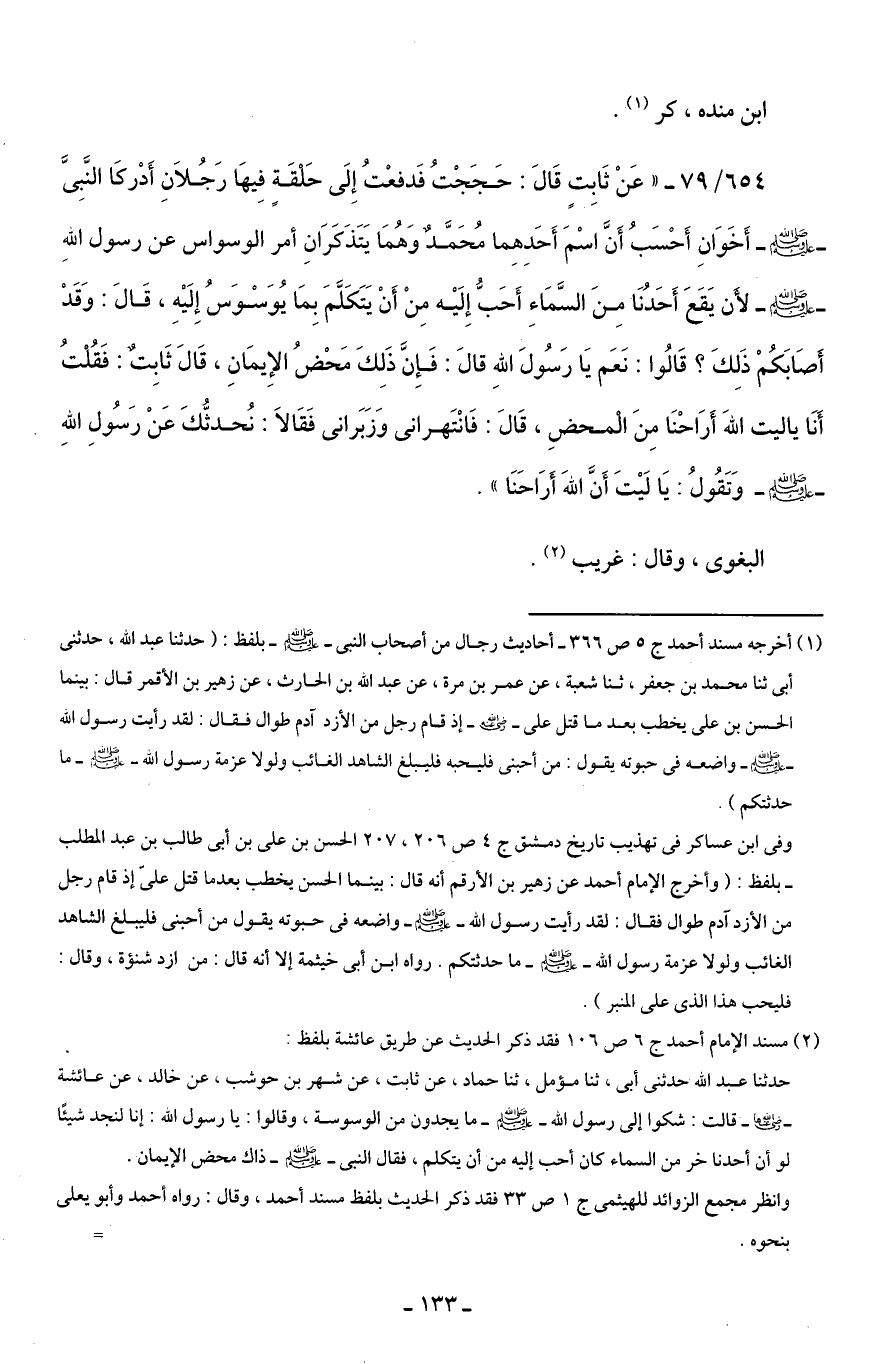 ابن منده ، كر (١) .
٧٩/٦٥٤ ـ « عَنْ ثَابِتٍ قَالَ : حَـجَجْتُ فَدفعْتُ إِلَى حَلْقَـةٍ فِيهَا رَجُـلاَنِ أَدْركَا النَّبِىَّ
ـ ﷺ ـ أَخَوَانِ أَحْسَبُ أَنَّ اسْمَ أَحَدِهما مُحَمَّـدٌ وَهُمَا يَتَذكَرَانِ أمر الوسواس عن رسول اللهِ
ـ ﷺ ـ لأَن يَقَعَ أَحَدُنَا مِـنَ السَّمَاءِ أَحَبُّ إِلَيْـهِ مِنْ أَنْ يَتَكَلَّمَ بِمَا يُوَسْـوَسُ إِلَيْهِ ، قَـالَ : وَقَدْ
أَصَابَكُمْ ذَلِكَ ؟ قَالُوا : نَعَم يَا رَسُولَ اللهِ قالَ : فَـإِنَّ ذَلِكَ مَحْضُ الإِيمَانِ ، قَالَ ثَابتٌ : فَقُلْتُ
أَنَا ياليت اللهَ أَرَاحْنَا مِنَ الْمـحضِ ، قَالَ : فَانْتَهـرانى وَزَبَرانى فَقَالاَ : نُحـدثُّكَ عَنْ رَسُولِ اللهِ
ـ ﷺ ـ وَتَقُولُ : يَا لَيْتَ أَنَّ اللهَ أَرَاحَنَا » .
البغوى ، وقال : غريب (٢) .
(١) أخرجه مسند أحمد ج ٥ ص ٣٦٦ ـ أحاديث رجـال من أصحاب النبى ـ ﷺ ـ بلفظ : ( حدثنا عبد الله ، حدثنى
أبى ثنا محمـد بن جعفر ، ثـنا شعبة ، عن عمـر بن مرة ، عن عبد الله بن الحارث ، عن زهير بن الأقمر قـال : بينما
الحسن بن على يخطب بعد مـا قتل على ـ رضي الله عنه ـ إذ قـام رجل من الأزد آدم طوال فـقـال : لقد رأيت رسـول الله
ـ ﷺ ـ واضعـه فى حبوته يقـول : من أحبنى فليـحبه فليـبلغ الشاهد الغـائب ولولا عزمة رسـول الله ـ ﷺ ـ ما
حدثتكم ) .
وفى ابن عساكر فى تهذيب تاريخ دمـشق ج ٤ ص ٢٠٦ ، ٢٠٧ الحسن بن على بن أبى طالب بن عبد المطلب
ـ بلفظ : ( وأخرج الإمام أحمد عن زهير بن الأرقم أنه قال : بينـما الحسن يخطب بعدما قتل علىّ إذ قام رجل
من الأزد آدم طوال فقـال : لقد رأيت رسـول الله ـ ﷺ ـ واضعه فى حـبوته يقول من أحبنى فليبلغ الشاهد
الغائب ولولا عزمة رسول الله ـ ﷺ ـ ما حدثتكم . رواه ابـن أبى خيثمة إلا أنه قال : من ازد شنؤة ، وقال :
فليحب هذا الذى على المنبر ) .
(٢) مسند الإمام أحمد ج ٦ ص ١٠٦ فقد ذكر الحديث عن طريق عائشة بلفظ :
حدثنا عـبد الله حدثنى أبى ، ثنا مـؤمل ، ثنا حماد ، عن ثابت ، عن شهـر بن حوشب ، عن خالد ، عن عـائشة
ـ رضي الله عنها ـ قالت : شكوا إلى رسول الله ـ ﷺ ـ ما يجدون من الوسوسة ، وقالوا : يا رسول الله : إنا لنجد شيئًا
لو أن أحدنا خر من السماء كان أحب إليه من أن يتكلم ، فقال النبى ـ ﷺ ـ ذاك محض الإيمان .
وانظر مجمع الزوائد للهيثمى ج ١ ص ٣٣ فقد ذكر الحديث بلفظ مسند أحمد ، وقال : رواه أحمد وأبو يعلى
بنحوه . =
ـ ١٣٣ ـ